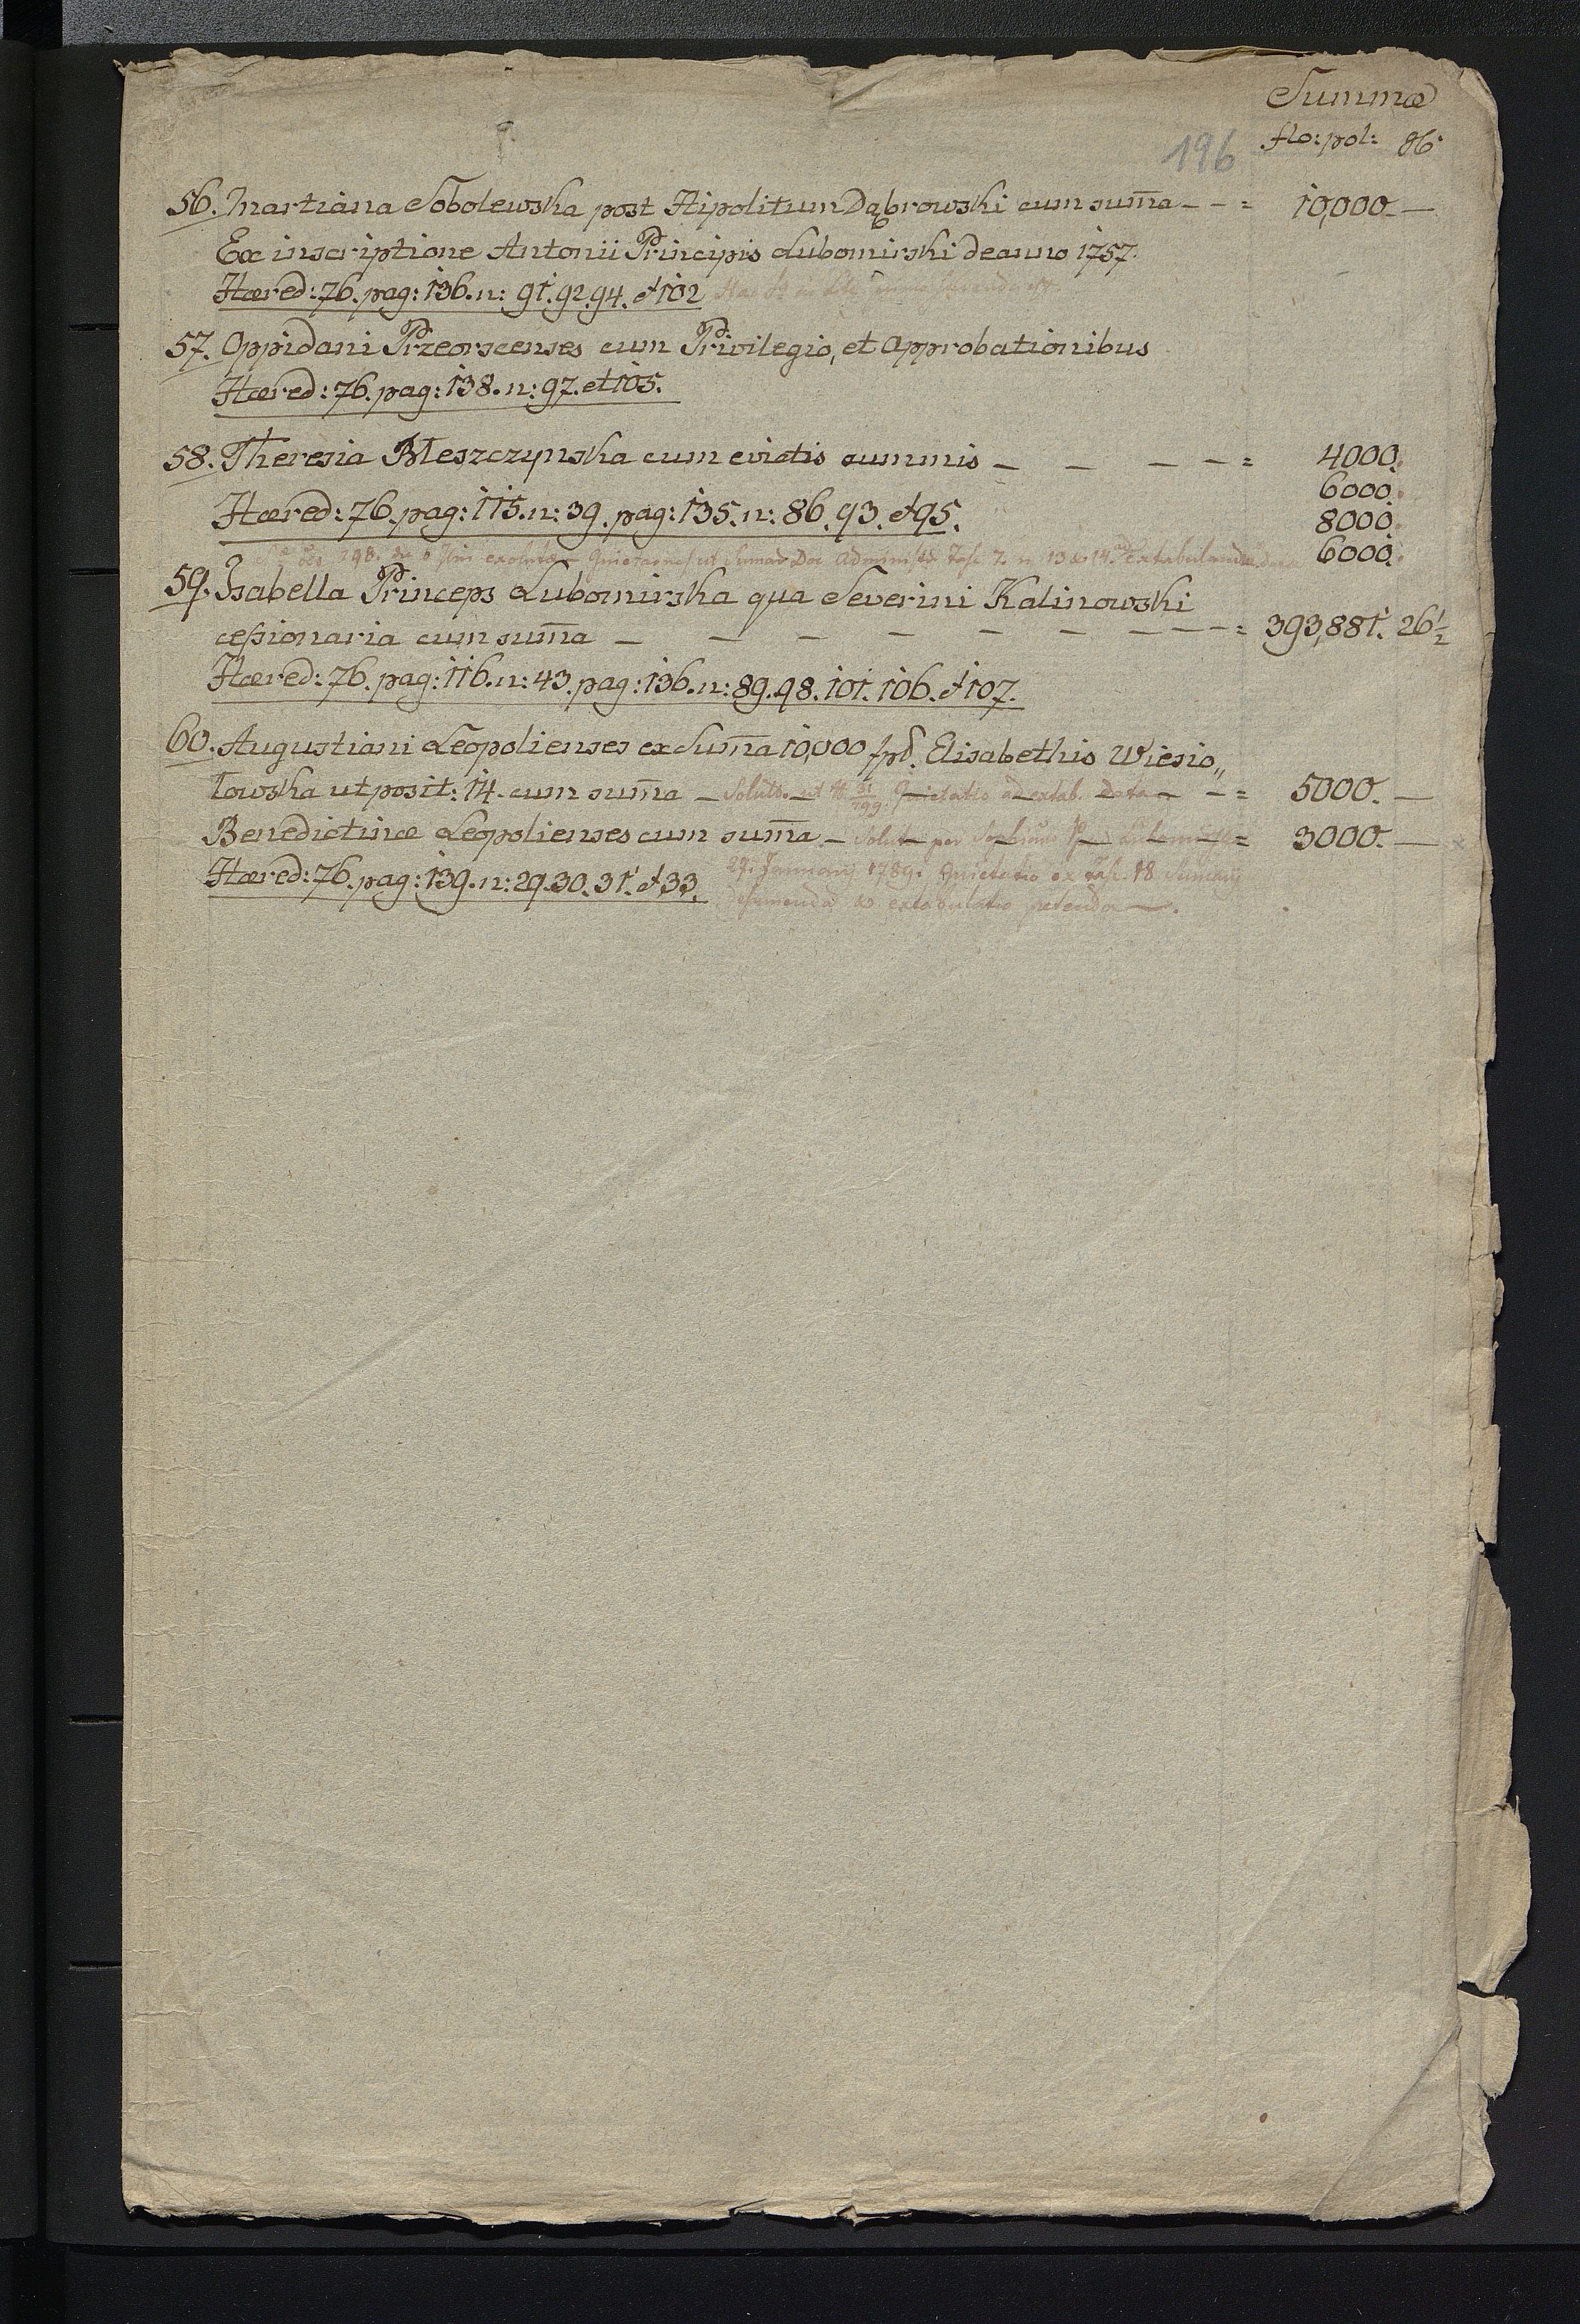 Summæ
196 flo: pol: gr
56. Martiana Sobolewska post Hipolitum Dąbrowski cum sum̄a - - = 10,000. —
Ex inscriptione Antonii Principis Lubomirski de anno 1757.
Hæred: 76. pag: 136. n: 91. 92. 94. et 102
57. Oppidani Przeorscenses cum Privilegio, et approbationibus
Hæred: 76. pag: 138. n: 97. et 105.
58. Theresia Błeszczynska cum evictis summis — — — - = 4000.
6000.
Hæred: 76. pag: 115. n: 39. pag: 135. n: 86. 93. et 95. 8000.
6000.
ut Sumar Doc Administr Fasc 7. n 13 & 14. Extabulandae
59. Isabella Princeps Lubomirska qua Severini Kalinowski
cessionaria cum sum̄a — — — — — — - - - = 393,881. 26½
Hæred: 76. pag: 116. n: 43. pag: 136. n: 89. 98. 101. 106. et 107.
60. Augustiani Leopolienses ex Sum̄a 10,000 fpol. Elisabethis Wiesio„
łowska ut posit: 14. cum sum̄a — Soluta ut Quietatio ad extab. Data - = 5000. —
Benedictinæ Leopolienses cum sum̄a — Soluta per = 3000. —
Hæred: 76. pag: 139. n: 29. 30. 31. et 33.
29. Januarij 1789. Quietatio ex Fasc. 18 Sumarij
desumenda & extabulatio petenda —.